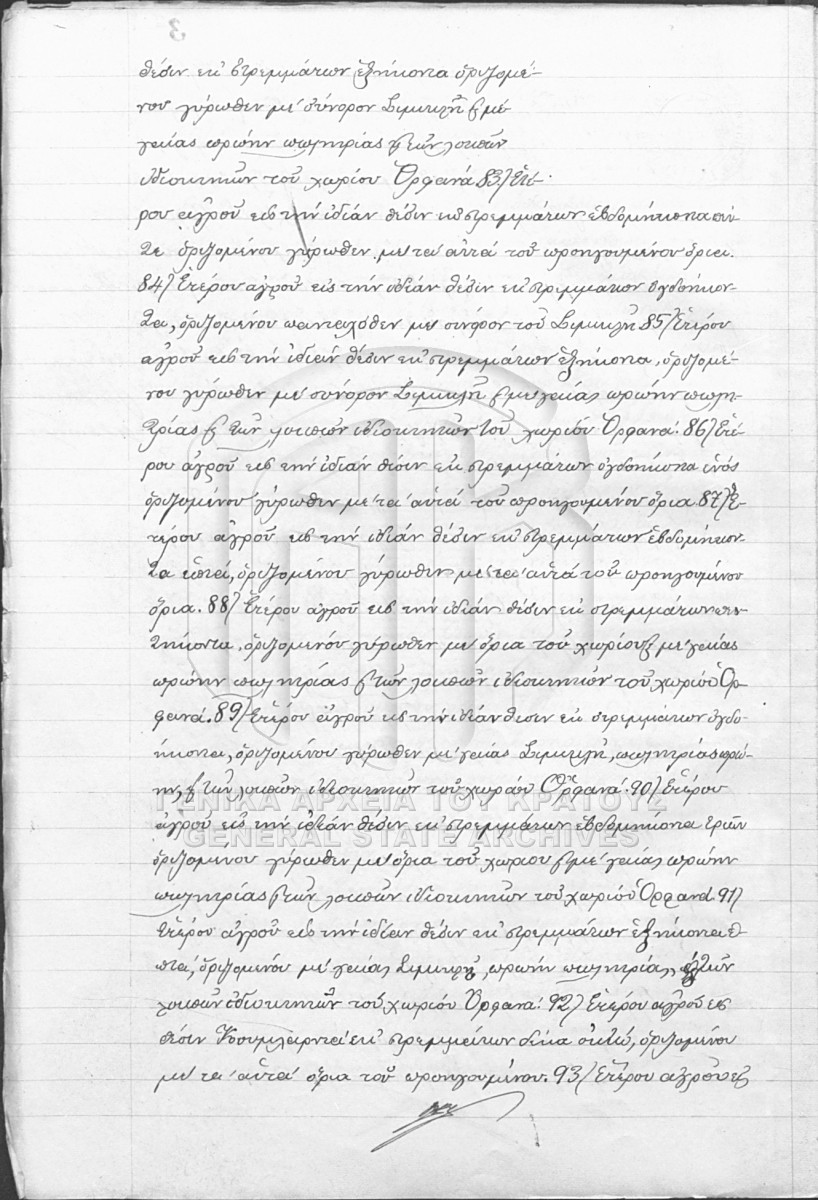 θέσιν εκ στρεμμάτων ἑξήκοντα ὁριζομέ-
νου γύρωθεν μέ σύνορον Σιμικλῆ ϗ μέ
γαίας πρώην πωλητρίας ϗ τῶν λοιπῶν
ιδιοκτητῶν τοῦ χωρίου Ὀρφανά. 83) Ἑτέ-
ρου αγροῦ εις τήν ιδίαν θέσιν εκ στρεμμάτων ἑβδομήκοντα πέν-
τε ὁριζομένου γύρωθεν με τα αὐτά τοῦ προηγουμένου ὅρια.
84) Ἑτέρου αγροῦ εις τήν ιδίαν θέσιν εκ στρεμμάτων ογδοήκον-
τα, ὁριζομένου πανταχόθεν με σύνορον τοῦ Σιμικλῆ 85) Ἑτέρου
αγροῦ εις τήν ἰδίαν θέσιν εκ στρεμμάτων ἑξήκοντα, ὁριζομέ-
νου γύρωθεν με σύνορον Σιμικλῆ ϗ με γαίας πρώην πωλη-
τρίας ϗ τῶν λοιπῶν ιδιοκτητῶν τοῦ χωρίου Ὀρφανά. 86) Ἑτέ-
ρου ἀγροῦ εις την ἰδίαν θέσιν εκ στρεμμάτων ογδοήκοντα ἑνός
ὁριζομένου γύρωθεν με τα αὐτά τοῦ προηγουμένου ὅρια. 87) Ἑ-
τέρου αγροῦ εις τήν ιδίαν θέσιν εκ στρεμμάτων ἑβδομήκον-
τα ἑπτά, ὁριζομένου γύρωθεν με τα αὐτά τοῦ προηγουμένου
ὅρια. 88) Ἑτέρου αγροῦ εις τήν ιδίαν θέσιν εκ στρεμμάτων πεν-
τήκοντα, ὁριζομένου γύρωθεν με ὅρια τοῦ χωρίου ϗ με γαίας
πρώην πωλητρίας ϗ τῶν λοιπῶν ιδιοκτητῶν τοῦ χωρίου Ὀρ-
φανά. 89) Ἑτέρου αγροῦ εις τήν ιδίαν θέσιν εκ στρεμμάτων ὀγδο-
ήκοντα, ὁριζομένου γύρωθεν με γαίας Σιμικλῆ, πωλητρίας πρώ-
ην, ϗ τῶν λοιπῶν ιδιοκτητῶν τοῦ χωρίου Ὀρφανά. 90) Ἑτέρου
ἀγροῦ εις τήν ἰδίαν θέσιν εκ στρεμμάτων ἑβδομήκοντα τριῶν
ὁριζομένου γύρωθεν με ὅρια τοῦ χωρίου ϗ με γαίας πρώην
πωλητρίας ϗ τῶν λοιπῶν ιδιοκτητῶν τοῦ χωρίου Ὀρφανά 91)
Ἑτέρου αγροῦ εις τήν ἰδίαν θέσιν εκ στρεμμάτων ἑξήκοντα ε-
πτά, ὁριζομένου με γαίας Σιμικλῆ, πρώην πωλητρίας, ϗ τῶν
λοιπῶν ἰδιοκτητῶν τοῦ χωρίου Ὀρφανά. 92) Ἑτέρου αγροῦ εις
θέσιν εκ στρεμμάτων δέκα ὀκτώ, ὁριζομένου
με τα αὐτά ὅρια τοῦ προηγουμένου. 93) Ἑτέρου αγροῦ εις
ΓΕΝΙΚΑ ΑΡΧΕΙΑ ΤΟΥ ΚΡΑΤΟΥΣ
GENERAL STATE ARCHIVES